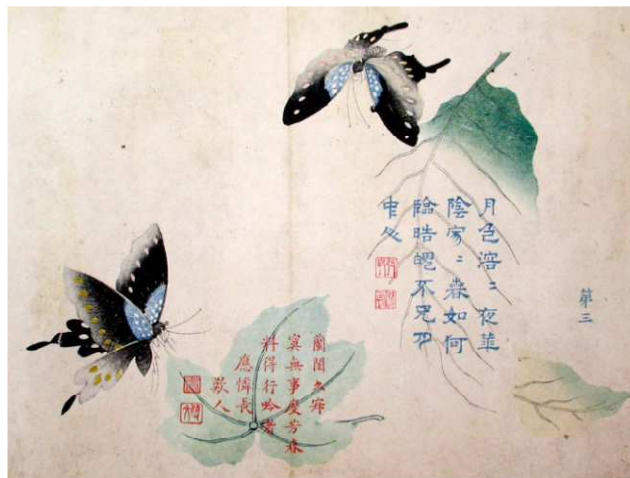 第三
月色溶〻夜華
陰寂〻春如何
臨皓魄不見月
中人
蘭閨久寂
寞無事度芳春
料得行吟者
應憐長
歎人